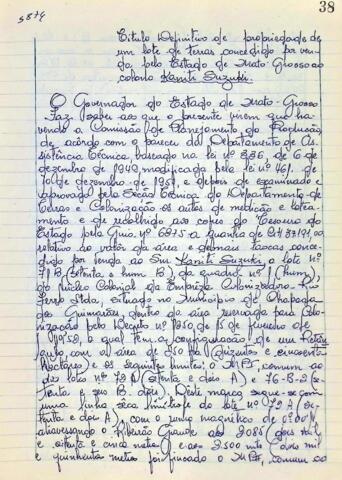 5874
38
Título Definitivo de propriedade de
um lote de terras concedido por ven
da, pelo Estado de Mato-Grosso ao
colono Kaniti Suzuki.
O Governador do Estado de Mato-Grosso
Faz saber aos que o presente virem que ha-
vendo a Comissão de Planejamento da Produção,
de acôrdo com o parecer do Departamento de As-
sistência Técnica, baseado na lei nº 336, de 6 de
dezembro de 1949, modificada pela lei nº 461, de
10 de dezembro de 1951, e depois de examinado e
aprovado pela Secção Técnica do Departamento de
Terras e Colonização os autos de medição e lotea-
mento e de recolhido aos cofres do Tesouro do
Estado pela Guia nº 6875 a quantia de
relativo ao valor da área e demais taxas, conce-
dido por venda ao Snr. Kaniti Suzuki, o lote nº
71 B (setenta e hum B), da quadra nº 1 (hum),
do Núcleo Colonial da Emprêza Colonizadora Rio
Ferro Ltda, situado no Município de Chapada
dos Guimarães, dentro da área reservada para Colo-
nização pelo Decreto nº 1250, de 15 de fevereiro de
1952, o qual tem a configuração de um Retân
gulo, com a área de 250 Ha (duzentos e cincoenta
Hectares) e os seguintes limites: o MP 5, comum ao
dos lotes nº 72 A (setenta e dois A) e 76-B-2 (se-
tenta e seis B. dois). Dêste marco segue-se com
uma linha seca limítrofe do lote nº 72 A (se-
tenta e dois A), com o rumo magnético de 0º 00'
atravessando o Ribeirão Grande aos 2085 (dois mil
e oitenta e cinco metros) e aos 2.500 mts (dois mil
e quinhentos metros foi fincado o MP 5, comum ao